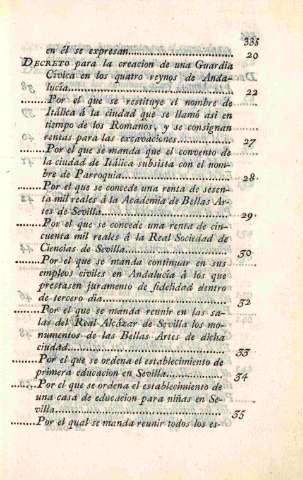 335
en él se expresan.................... 20
DECRETO para la creacion de una Guardia
Cívica en los quatro reynos de Anda-
lucía.................................... 22
......Por el que se restituye el nombre de
Itálica á la ciudad que se llamó así en
tiempo de los Romanos, y se consignan
rentas para las excavaciones............ 27
......Por el que se manda que el convento de
la ciudad de Itálica subsista con el nom-
bre de Parroquia........................ 28
......Por el que se concede una renta de sesen-
ta mil reales á la Academia de Bellas Ar-
tes de Sevilla........................... 29
......Por el que se concede una renta de cin-
cuenta mil reales á la Real Sociedad de
Ciencias de Sevilla...................... 30
......Por el que se manda continuar en sus
empleos civiles en Andalucía á los que
prestasen juramento de fidelidad dentro
de tercero dia........................... 32
......Por el que se manda reunir en las sa-
las del Real Alcázar de Sevilla los mo-
numentos de las Bellas Artes de dicha
ciudad................................... 33
......Por el que se ordena el establecimiento de
primera educacion en Sevilla............ 34
......Por el que se ordena el establecimiento de
una casa de educacion para niñas en Se-
villa.................................... 35
......Por el qual se manda reunir todos los es-